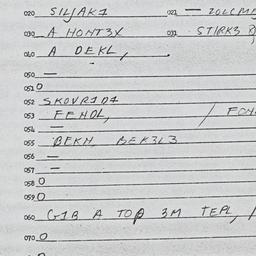 020 SILJAK1 021 —
030 A HONT3X 031 STIRK3
040 A DEKL,
050 —
051 0
052 SKOVR1D1
053 FENDL,
054 —
055 BFKH, BEK3L3
056 —
057 —
058 0
059 0
060 G1B A TOP 3M TEPL,
070 0